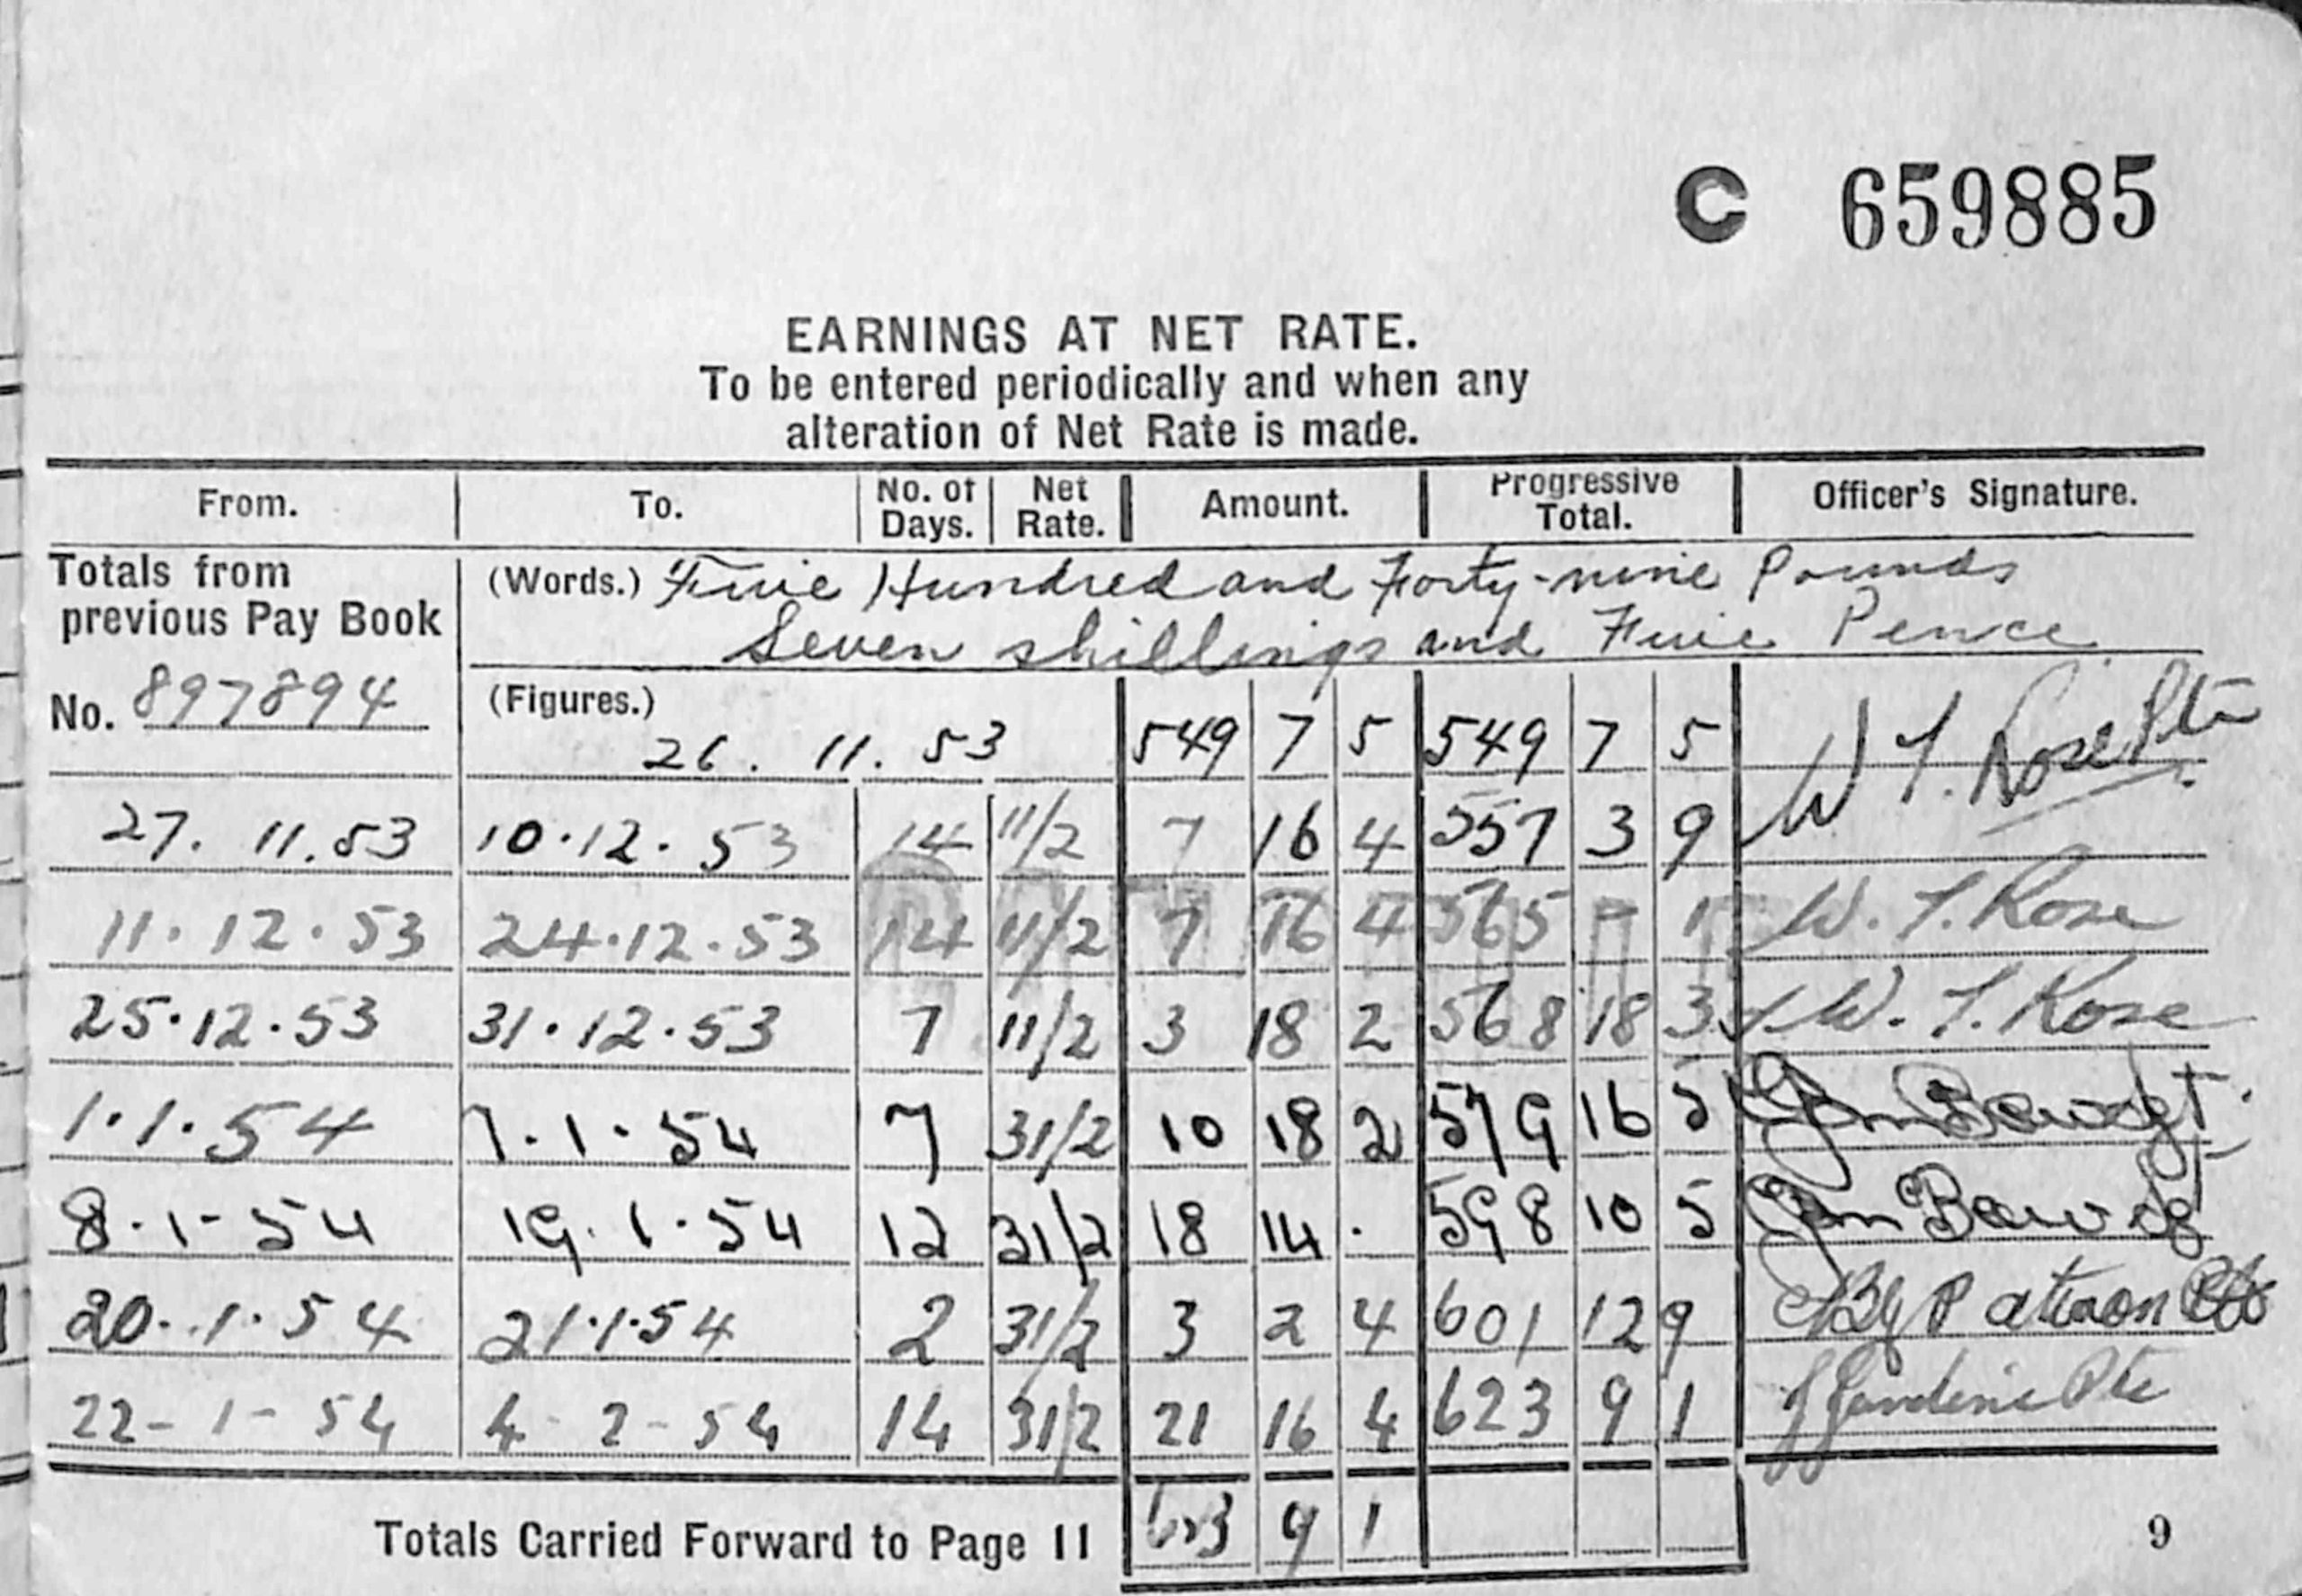 C 659885
EARNINGS AT NET RATE.
To be entered periodically and when any
alteration of Net Rate is made.
From. To. No. of Days. Net Rate. Amount. Progressive Total. Officer's Signature.
Totals from previous Pay Book (Words.) Five Hundred and Forty-nine Pounds
Seven shillings and Five Pence
No. 897894 (Figures.) 26. 11. 53 549 7 5 549 7 5 W T. Rose
27. 11. 53 10.12.53 14 11/2 7 16 4 557 3 9
11.12.53 24.12.53 14 11/2 7 16 4 565 - 1 W. T. Rose
25.12.53 31.12.53 7 11/2 3 18 2 568 18 3 W. T. Rose
1.1.54 7.1.54 7 31/2 10 18 2 579 16 5
8.1-54 19.1.54 12 31/2 18 14 . 598 10 5
20.1.54 21.1.54 2 31/2 3 2 4 601 12 9
22-1-54 4-2-54 14 31/2 21 16 4 623 9 1
Totals Carried Forward to Page 11 623 9 1
9